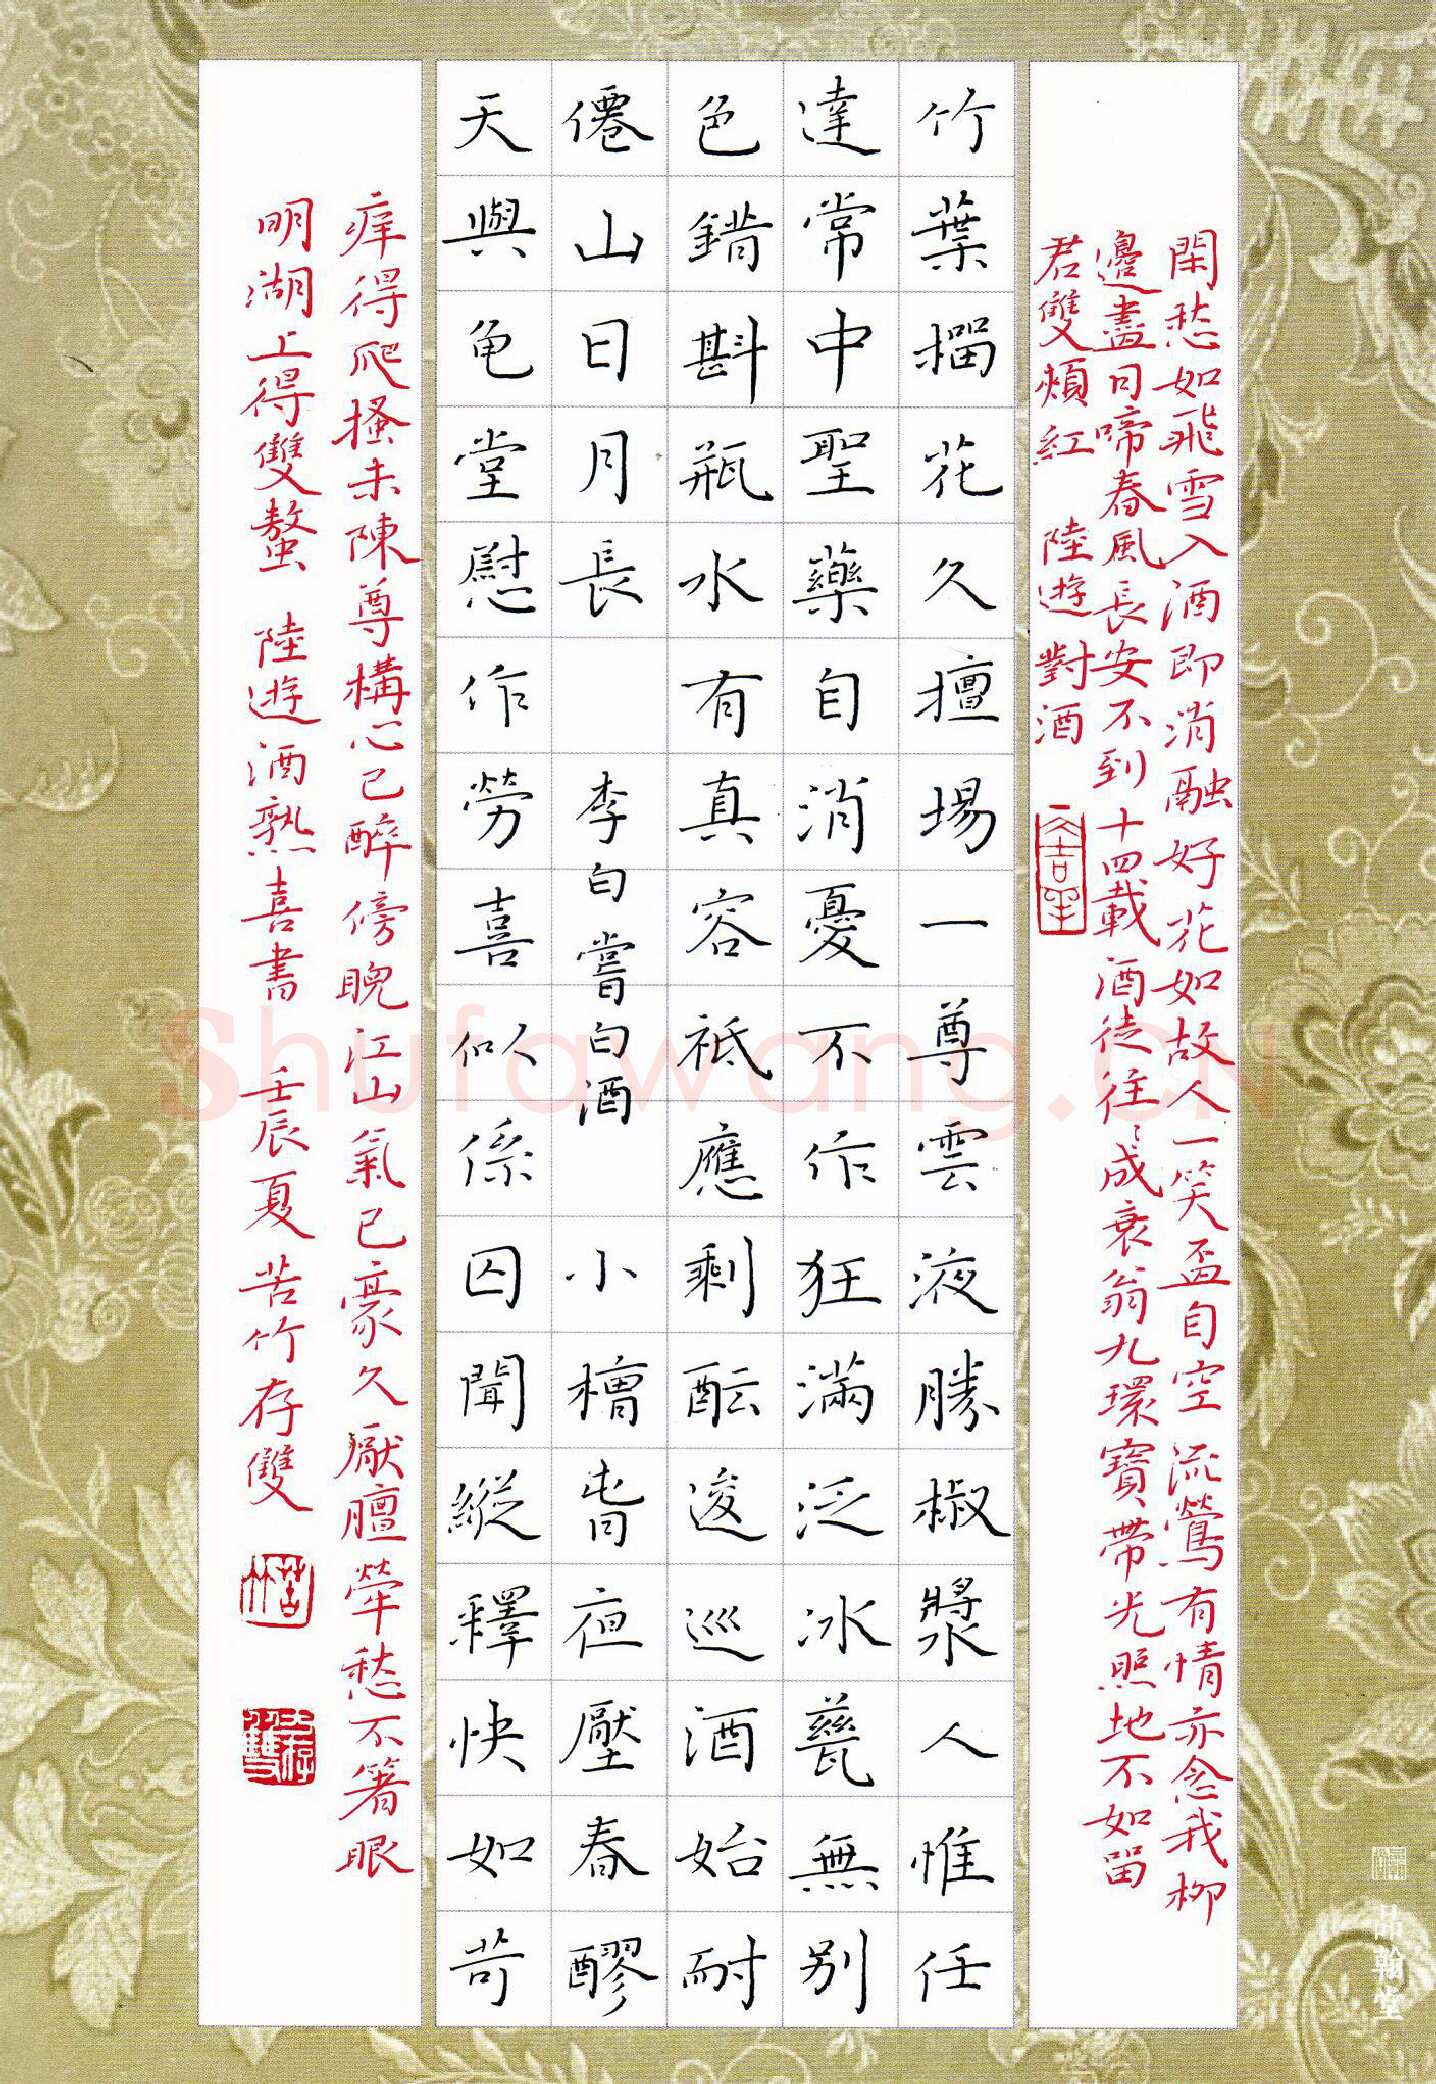 閑愁如飛雪入酒即消融好花如故人一笑盃自空流鶯有情亦念我柳
邊盡日啼春風長安不到十四載酒徒往〻成衰翁九環寶帶光照地不如留
君雙頰紅 陸遊對酒
大吉羊
竹葉榴花久擅場一尊雲液勝椒漿人惟任
達常中聖藥自消憂不作狂滿泛冰甆無別
色錯斟瓶水有真容祗應剩酝逡巡酒始耐
僊山日月長 李白嘗白酒 小槽昔夜壓春醪
天與龟堂慰作勞喜似係囚聞縱釋快如苛
痒得爬搔未陳尊構心已醉傍睨江山氣已豪久厭膻犖愁不箸眼
明湖上得雙螯 陸遊酒熟喜書 壬辰夏 苦竹存雙
苦竹
存雙
品翰堂
Shufawang.CN